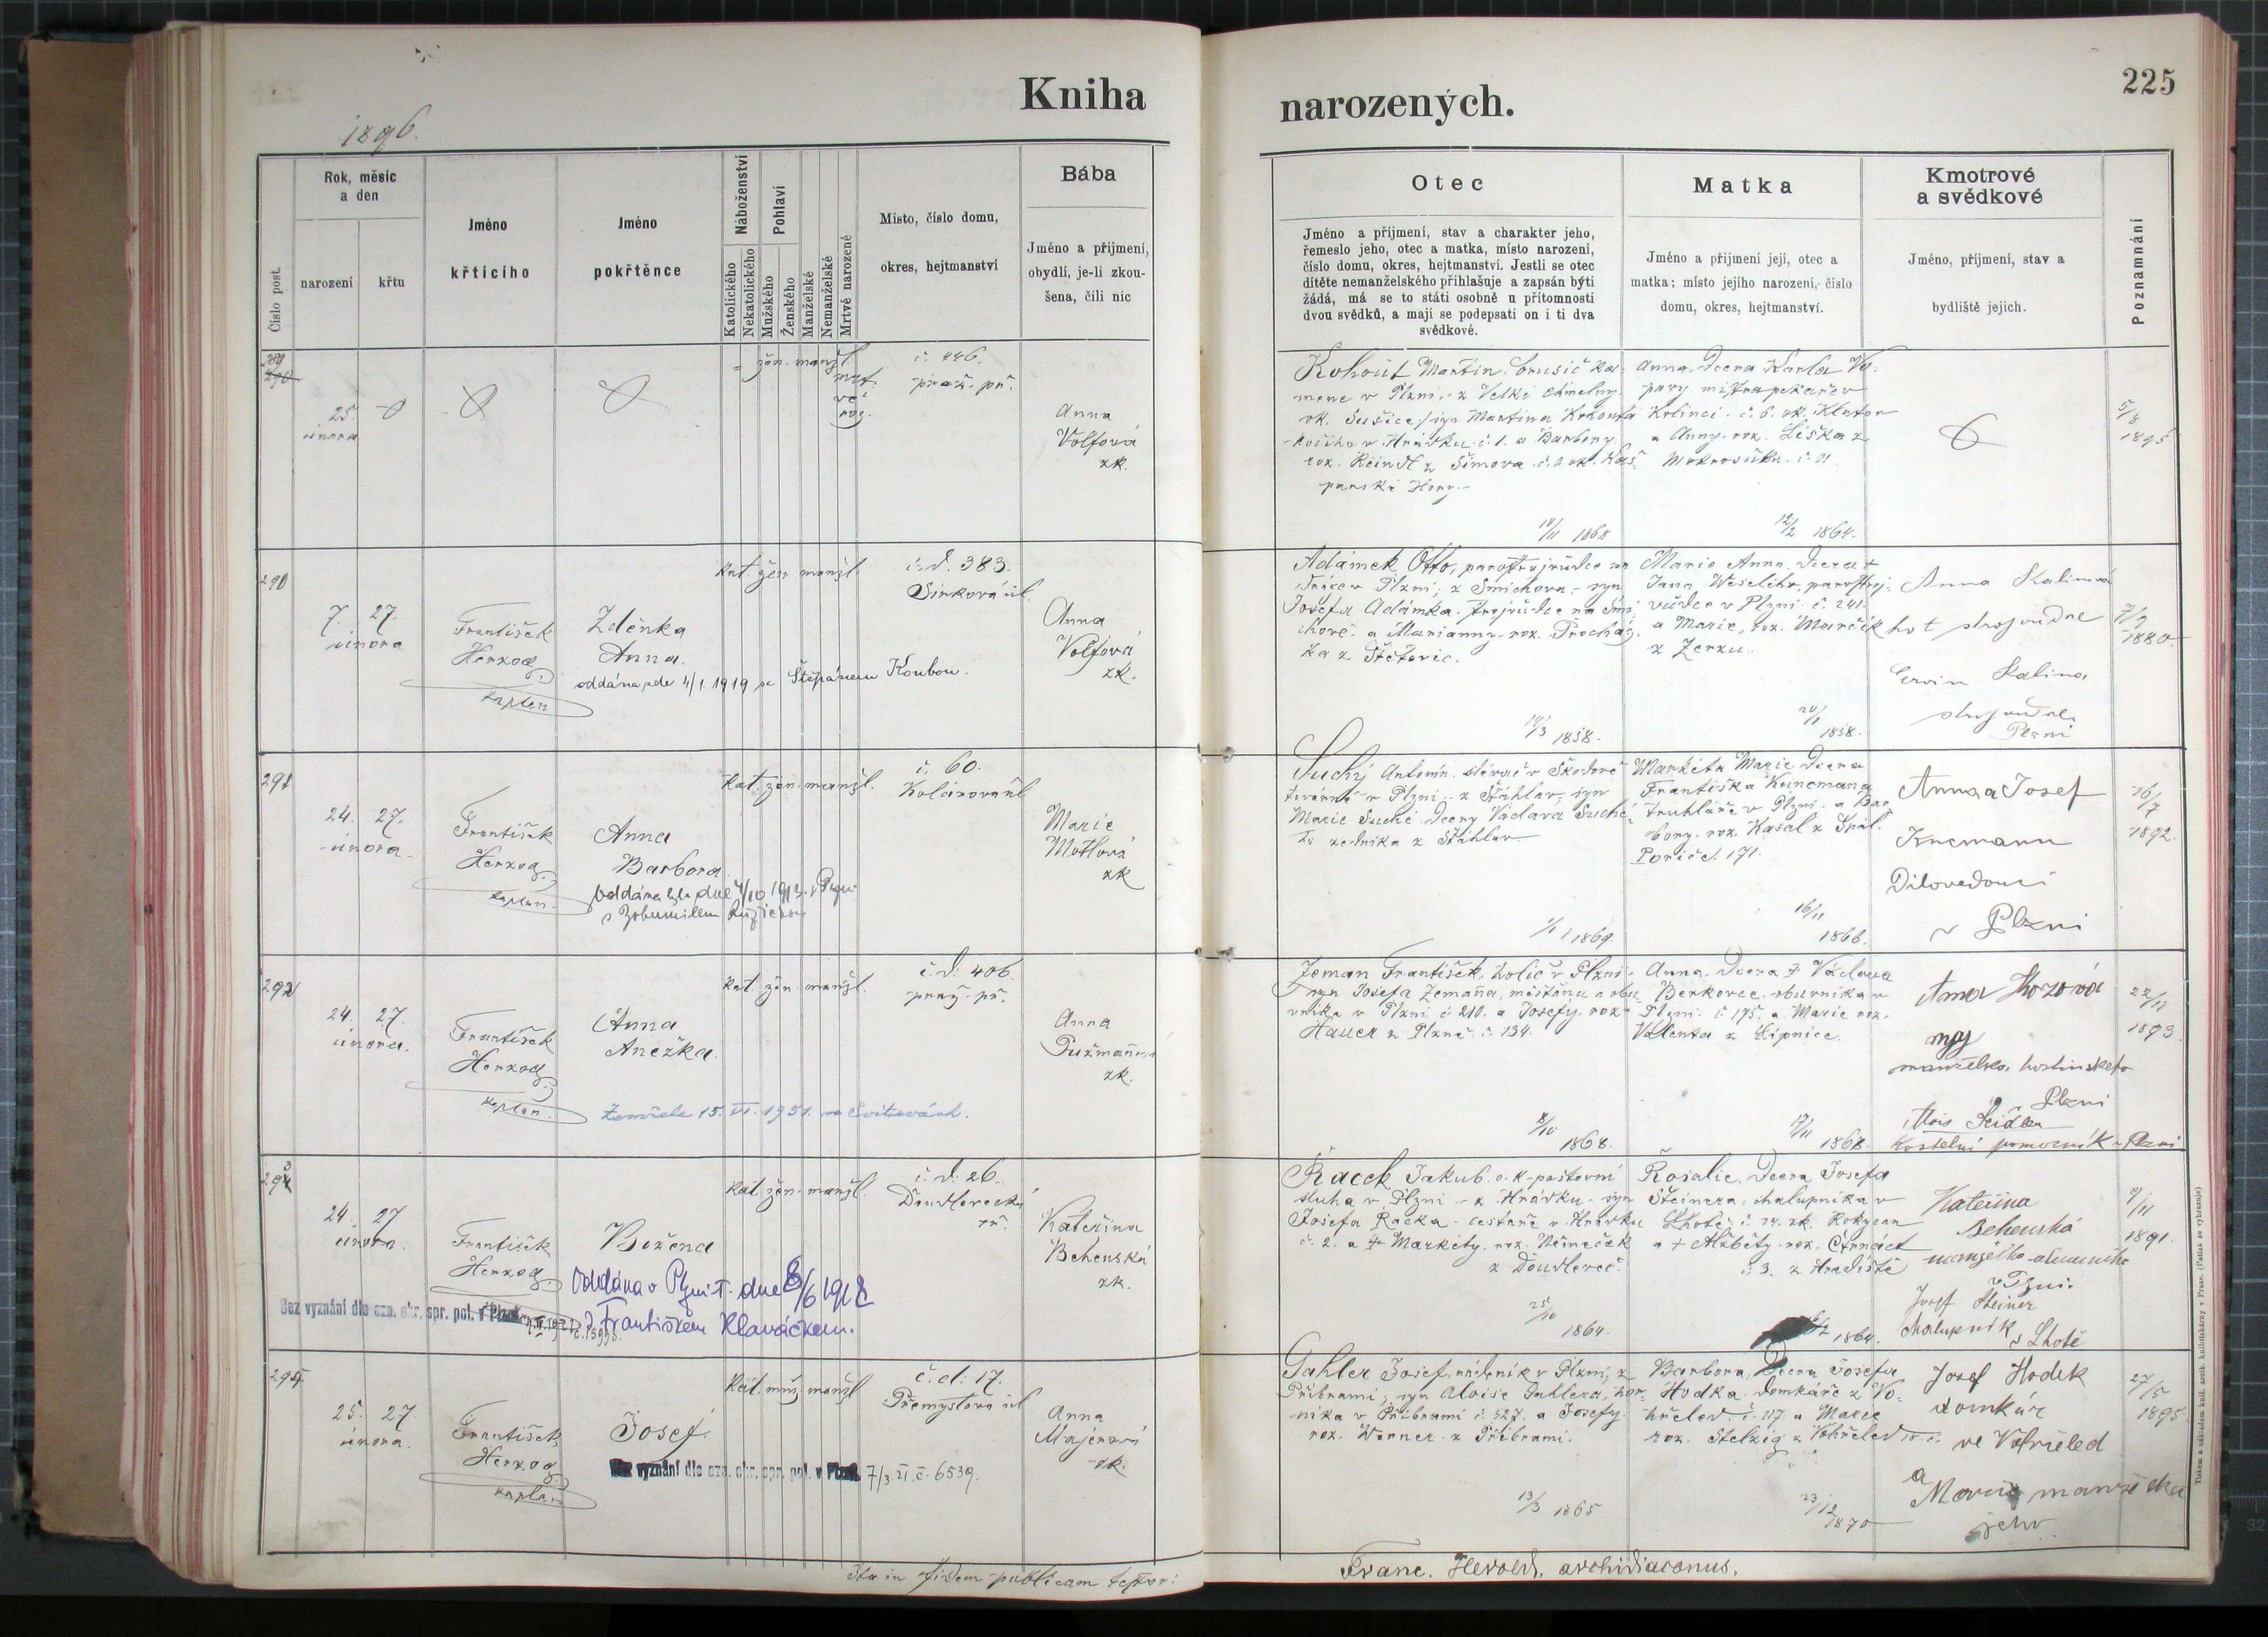 Kniha
1896.
Rok, měsíc
a den
narození
křtu
Číslo post.
Jméno
křtícího
Jméno
pokřtěnce
Náboženství
Katolického
Nekatolického
Pohlaví
Mužského
Ženského
Manželské
Nemanželské
Mrtvě narozené
Místo, číslo domu,
okres, hejtmanství
Bába
Jméno a přijmení,
obydlí, je-li zkou-
šena, čili nic
289
25.
února
žen. manžl.
mrt.
vě
roz.
č. 446.
praž. př.
Anna
Volfová
zk.
290
7. 27.
února
František
Herzog
kaplan
Zdeňka
Anna.
oddána dne 4/1. 1919 se Štěpánem Koubou.
kat. žen. manžl.
č. d. 383.
Sirková ul.
Anna
Volfová
zk.
291
24. 27.
února
František
Herzog
kaplan.
Anna
Barbora
Oddána byla dne 4/10 1913 v Plzni
s Bohumilem Růžičkou
kat. žen. manžl.
č. 60.
Kolárova ul
Marie
Motlová
zk
292
24. 27.
února.
František
Herzog
kaplan.
Anna
Anežka.
Zemřela 15. VI. 1951 ve Svitavách.
kat. žen. manžl.
č. d. 406.
praž. př.
Anna
zk.
293
24. 27
února.
František
Herzog
Božena
Oddána v Plzni dne 8/6 1918
s Františkem Hlaváčkem.
Bez vyznání dle ozn. okr. spr. pol. v Plzni
kat. žen. manžl.
č. d. 26.
Doudlevecká
tř.
Kateřina
Behenská
zk.
294
25. 27
února.
František
Herzog
kaplan
Josef.
Bez vyznání dle ozn. okr. spr. pol. v Plzni 7/3. 21. č. 6539.
kat. muž. manžl
č. d. 17.
Přemyslova ul
Anna
Majerová
zk.
Ita in fidem publicam testor:
narozených.
225
Otec
Jméno a příjmení, stav a charakter jeho,
řemeslo jeho, otec a matka, místo narození,
číslo domu, okres, hejtmanství. Jestli se otec
dítěte nemanželského přihlašuje a zapsán býti
žádá, má se to státi osobně u přítomnosti
dvou svědků, a mají se podepsati on i ti dva
svědkové.
Matka
Jméno a přijmení její, otec a
matka; místo jejího narození, číslo
domu, okres, hejtmanství.
Kmotrové
a svědkové
Jméno, příjmení, stav a
bydliště jejich.
Poznamnání
Kohout Martin, brusič ka-
mene v Plzni, z Velké Chmelny
ok. Sušice, syn Martina Kohouta
kočího v Hrádku č. 1. a Barbory
roz. Reindl z Šimova č. 2 ok. Kaš-
parské Hory.
14/11 1868
Anna, dcera Karla Vo-
pavy, mistra pekaře v
Kolinci č. 6. ok. Klatov
a Anny roz. Liška z
Mokrosuku č. 11.
12/2 1864.
5/8
1895
Adámek Otto, parostrojvůdce na
dráze v Plzni, z Smíchova, syn
Josefa Adámka, strojvůdce na Smí-
chově a Marianny roz. Procház-
ka z Štětovic.
14/3 1858.
Marie Anna, dcera +
Jana Veselého, parostroj-
vůdce v Plzni č. 241.
a Marie, roz. Mareček
z Zerzu.
24/1
1858.
Anna Kalinová
choť strojvůdce
Ervin Kalina
strojvůdce
Plzni
7/9
1880
Suchý Antonín, slévač v Škodově
továrně v Plzni, z Šťáhlav, syn
Marie Suché, dcery Václava Suché-
ho zedníka z Šťáhlav
1/1 1869.
Markéta Marie, dcera
Františka Kunemana
truhláře v Plzni a Bar-
bory, roz. Kasal z Spál.
Poříčí č. 171.
16/11
1866.
Anna a Josef
Kunemann
Dílovedoucí
v Plzni
26/7
1892.
Zeman František, holič v Plzni,
syn Josefa Zemana, měšťana a obu-
vníka v Plzni č. 210. a Josefy roz.
Hauer z Plzně č. 134.
8/10
1868.
Anna, dcera + Václava
Berkovce, obuvníka v
Plzni č. 175. a Marie roz.
Valenta z Lipnice.
17/11 1868.
Anna Kozová
manželka hostinského
Plzni
Alois Seidler
kostelní pomocník v Plzni
22/11
1893
Racek Jakub, c. k. poštovní
sluha v Plzni, z Hrádku, syn
Josefa Racka, cestaře v Hrádku
č. 2. a + Markéty, roz. Němeček
z Doudlevec.
25/10
1864.
Rosalie, dcera Josefa
Steinera, chalupníka v
Lhotě č. 14. ok. Rokycan
a + Alžběty roz. Čtrnáct
č. 3. z Hradiště
1864.
Kateřina
Behenská
manželka
v Plzni.
Josef Steiner
chalupník
v Lhotě
9/11
1891.
Gahler Josef, nádeník v Plzni, z
Příbrami, syn Aloise Gahlera, hor-
níka v Příbrami č. 527. a Josefy
roz. Werner z Příbrami.
13/3 1865
Barbora, dcera Josefa
Hodka, domkáře z Vo-
hřeled č. 117. a Marie
roz. Stelzig z Vohřeled
23/12
1870
Josef Hodek
domkář
ve Vohřeled
a
Marie manželka
jeho
27/5
1895.
Franc. Herold, archidiaconus.